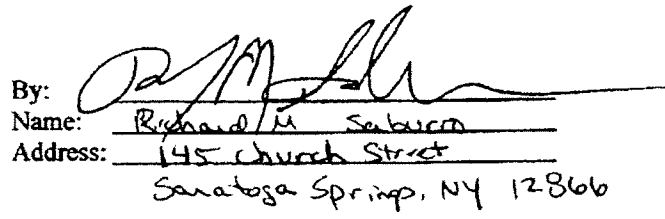 By:
Name: Richard M
Address: 145 Church Street
Saratoga Springs, NY 12866